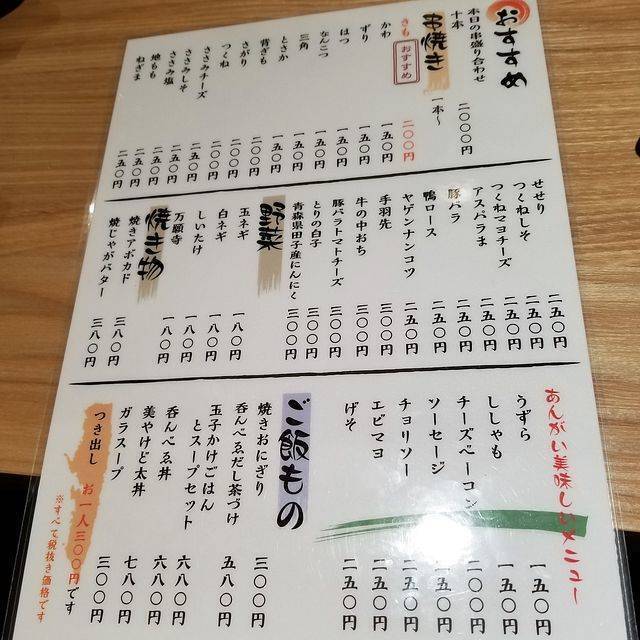 おすすめ
本日の串盛り合わせ
十本 二〇〇〇円
串焼き 一本～
きも おすすめ 二〇〇円
かわ 一五〇円
ずり 一五〇円
はつ 一五〇円
なんこつ 一五〇円
三角 一五〇円
とさか 一五〇円
背ぎも 二〇〇円
さがり 二〇〇円
つくね 二〇〇円
ささみチーズ 二五〇円
ささみしそ 二五〇円
ささみ塩 二五〇円
地もも 二五〇円
ねぎま 二五〇円
せせり 二五〇円
つくねしそ 二五〇円
つくねマヨチーズ 二五〇円
アスパラま 二五〇円
豚バラ 二五〇円
鴨ロース 二五〇円
ヤゲンナンコツ 二五〇円
手羽先 三〇〇円
牛の中おち 三〇〇円
豚バラトマトチーズ 三〇〇円
とりの白子 三〇〇円
青森県田子産にんにく 三〇〇円
野菜
玉ネギ 一八〇円
白ネギ 一八〇円
しいたけ 一八〇円
万願寺 一八〇円
焼き物
焼きアボカド 三八〇円
焼じゃがバター 三八〇円
あんがい美味しいメニュー
うずら 一五〇円
ししゃも 一五〇円
チーズベーコン 二〇〇円
ソーセージ 二五〇円
チョリソー 二五〇円
エビマヨ 二五〇円
げそ 二五〇円
ご飯もの
焼きおにぎり 三〇〇円
呑んべゑだし茶づけ 五八〇円
玉子かけごはん
とスープセット 六八〇円
呑んべゑ丼 六八〇円
美やけど太丼 七八〇円
ガラスープ 三〇〇円
つき出し お一人三〇〇円です
※すべて税抜き価格です